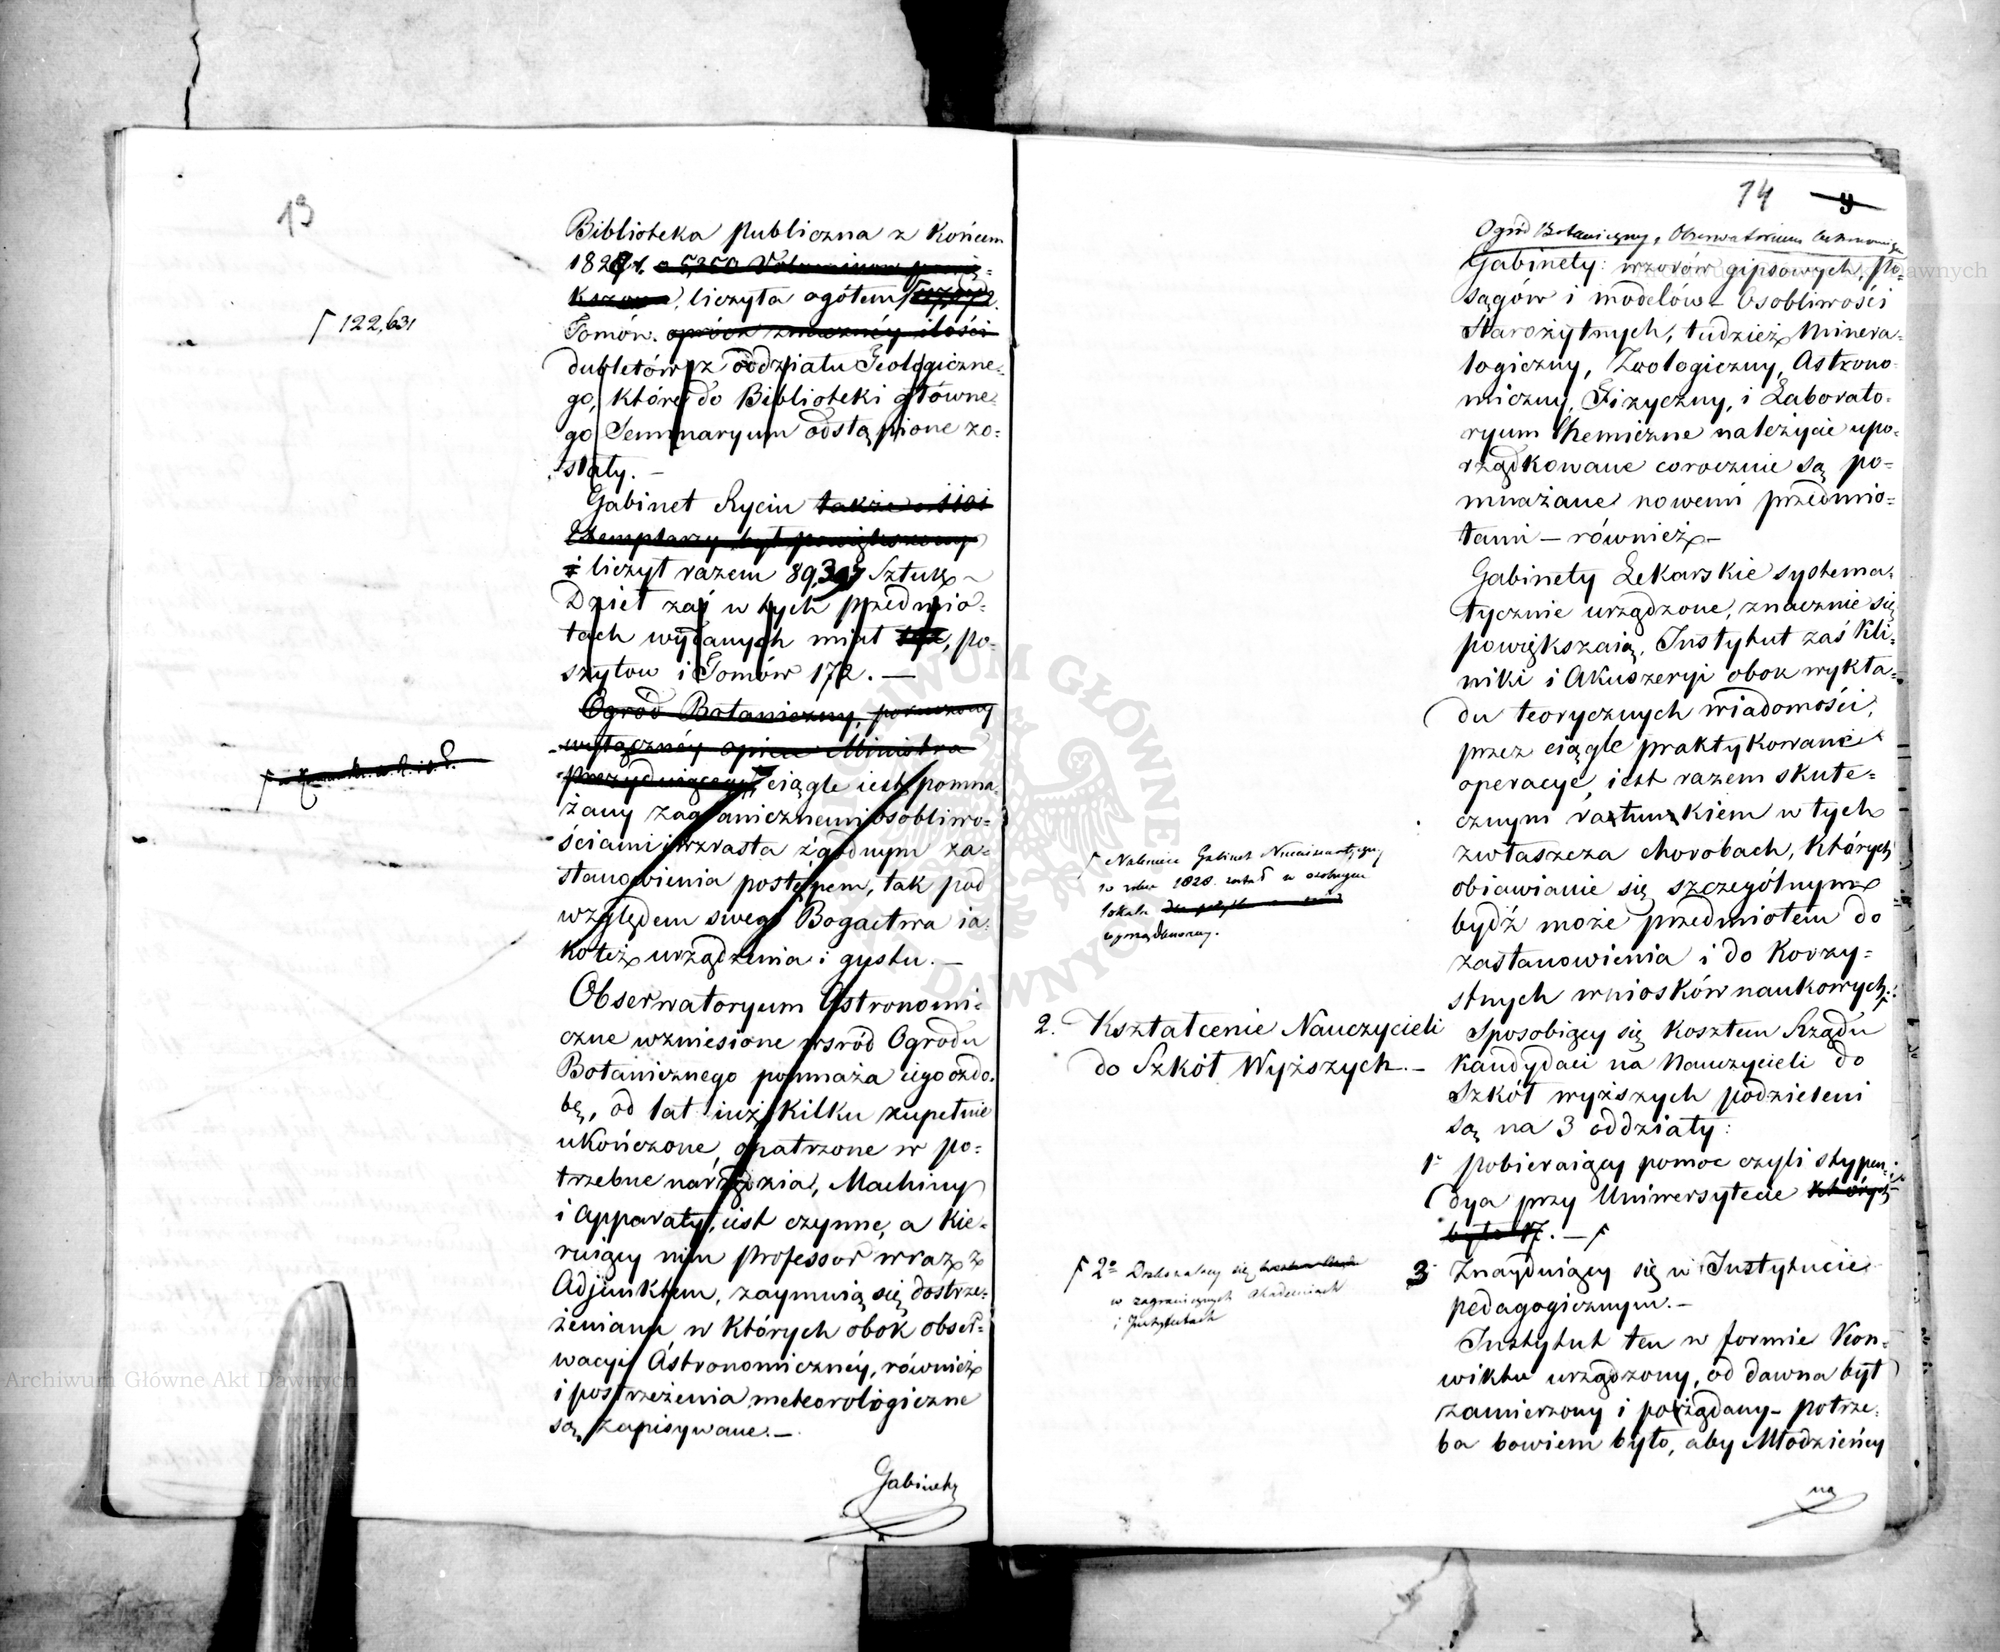 13
Biblioteka publiczna z Końcem
1828 r. o 5,250 Voluminow powię-
kszona, liczyła ogółem
⌈ 122,631
Tomów. oprócz znacznéy ilości
dubletów z oddziału Teologiczne-
go, które do Biblioteki główne-
go Seminaryum odstąpione zo-
stały. —
Gabinet Rycin także
Exemplarzy był powiększony
i liczył razem 89,307 Sztuk —
Dzieł zaś w tych przedmio-
tach wydanych miał, po-
szytow i Tomów 172. —
Ogród Botaniczny, poruczony
wyłącznéy opiece Ministra
Prezyduiącego, ciągle iest pomna-
żany zagranicznemi osobliwo-
ściami i wzrasta żądnym za-
stanowienia postępem, tak pod
względem swego Bogactwa ia-
koteż urządzenia i gustu. —
Obserwatoryum Astronomi-
czne wzniesione wsród Ogrodu
Botanicznego pomnaża iego ozdo-
bę, od lat iuż kilku zupełnie
ukończone, opatrzone w po-
trzebne narzędzia, Machiny
i apparaty, iest czynne, a kie-
ruiący nim Professor wraz z
Adjunktem, zaymuią się dostrze-
żeniami, w których obok obser-
wacyi Astronomicznéy, również
i postrzeżenia meteorologiczne
są zapisywane. —
Gabinety
14 9
Ogród Botaniczny, Obserwatorium Astronomiczne
Gabinety: wzorów gipsowych, po-
sągów i modelów — Osobliwości
Starożytnych, tudzież Minera-
logiczny, Zoologiczny, Astrono-
miczny, Fizyczny, i Laborato-
ryum Chemiczne należycie upo-
rządkowane corocznie są po-
mnażane nowemi przedmio-
tami — również —
Gabinety Lekarskie systema-
tycznie urządzone, znacznie się
powiększaią, Instytut zaś Kli-
niki i Akuszeryi obok wykła-
du teorycznych wiadomości,
przez ciągle praktykowane
operacye, iest razem skute-
cznym ratunkiem w tych
zwłaszcza chorobach, których
obiawianie się szczególnym
bydź może przedmiotem do
zastanowienia i do korzy-
stnych wniosków naukowych.
⌈ Nakoniec Gabinet Numizmatyczny
w roku 1828. został w osobnym
lokalu
uporządkowany.
2. Kształcenie Nauczycieli
do Szkół Wyższych. —
Sposobiący się kosztem Rządu
Kandydaci na Nauczycieli do
Szkół wyższych podzieleni
są na 3 oddziały:
1° pobieraiący pomoc czyli stypen-
dya przy Uniwersytecie których
było 17. — ⌈
⌈ 2° Doskonalący się
w zagranicznych Akademiach
i Instytutach
3° Znayduiący się w Instytucie
pedagogicznym. —
Instytut ten w formie Kon-
wiktu urządzony, od dawna był
zamierzony i pożądany — potrze-
ba bowiem było, aby Młodzieńcy
na
Archiwum Główne Akt Dawnych
ARCHIWUM GŁÓWNE AKT DAWNYCH